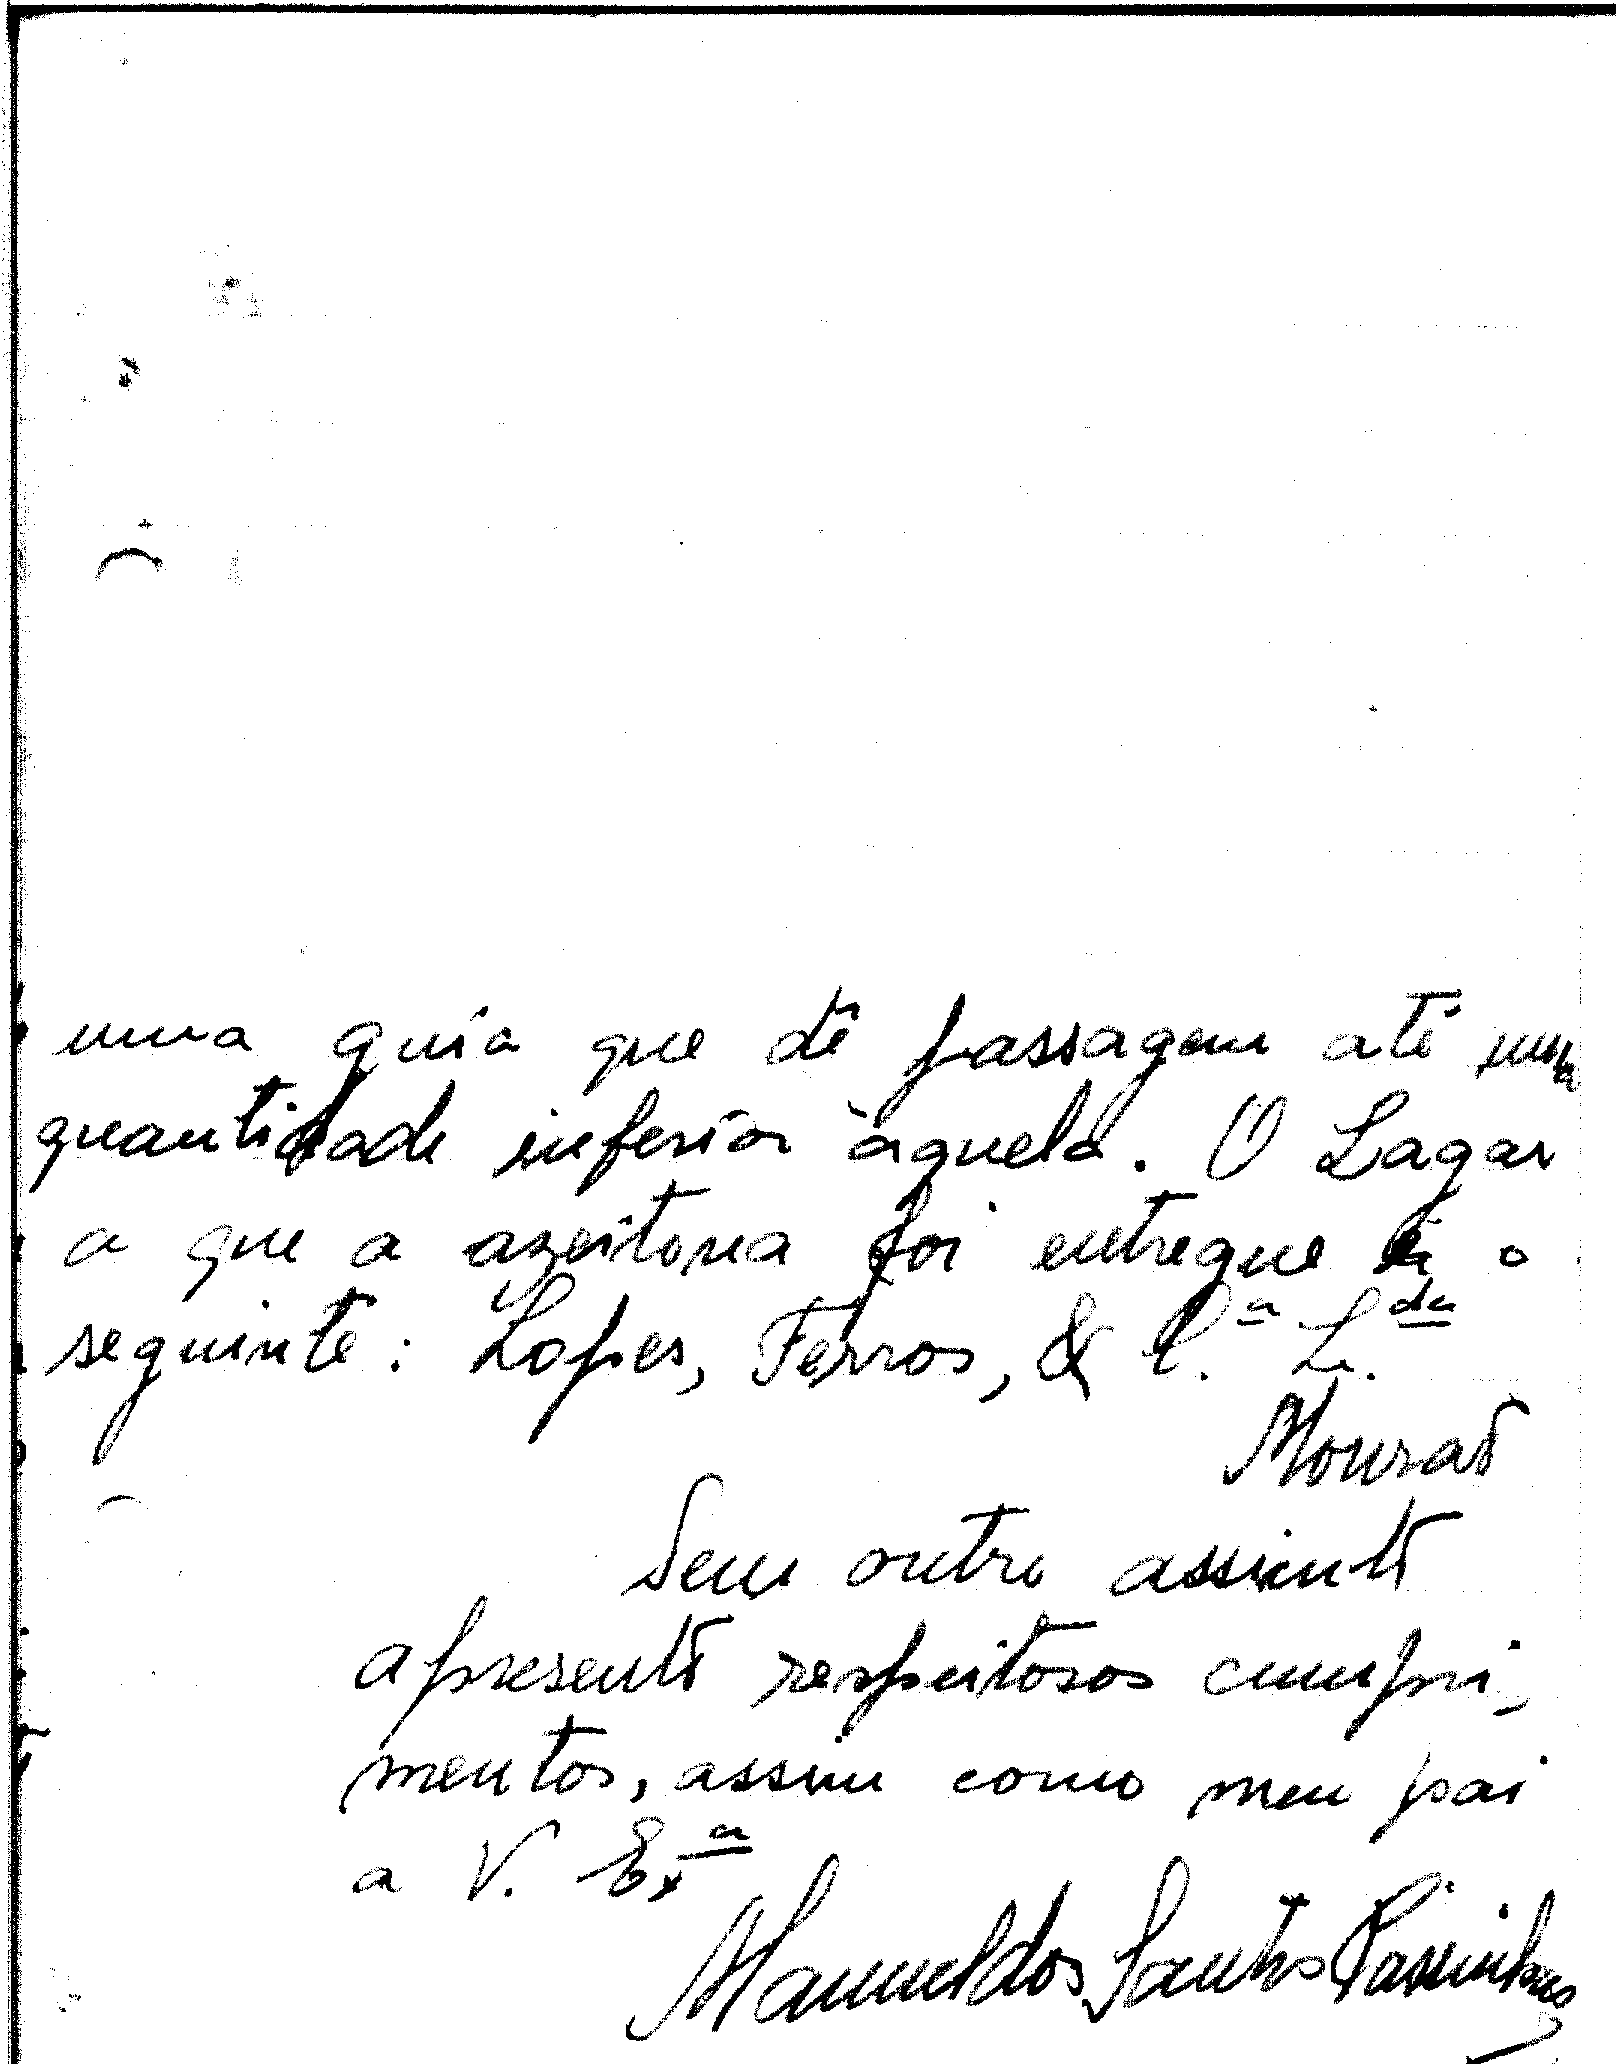 uma guia que dê passagem até uma
quantidade inferior àquela. O Lagar
a que a azeitona foi entregue é o
seguinte: Lopes, Ferros, & C.ª L.da
Mourão
Sem outro assunto
apresento respeitosos cumpri-
mentos, assim como meu pai
a V. Ex.ª
Manuel dos Santos